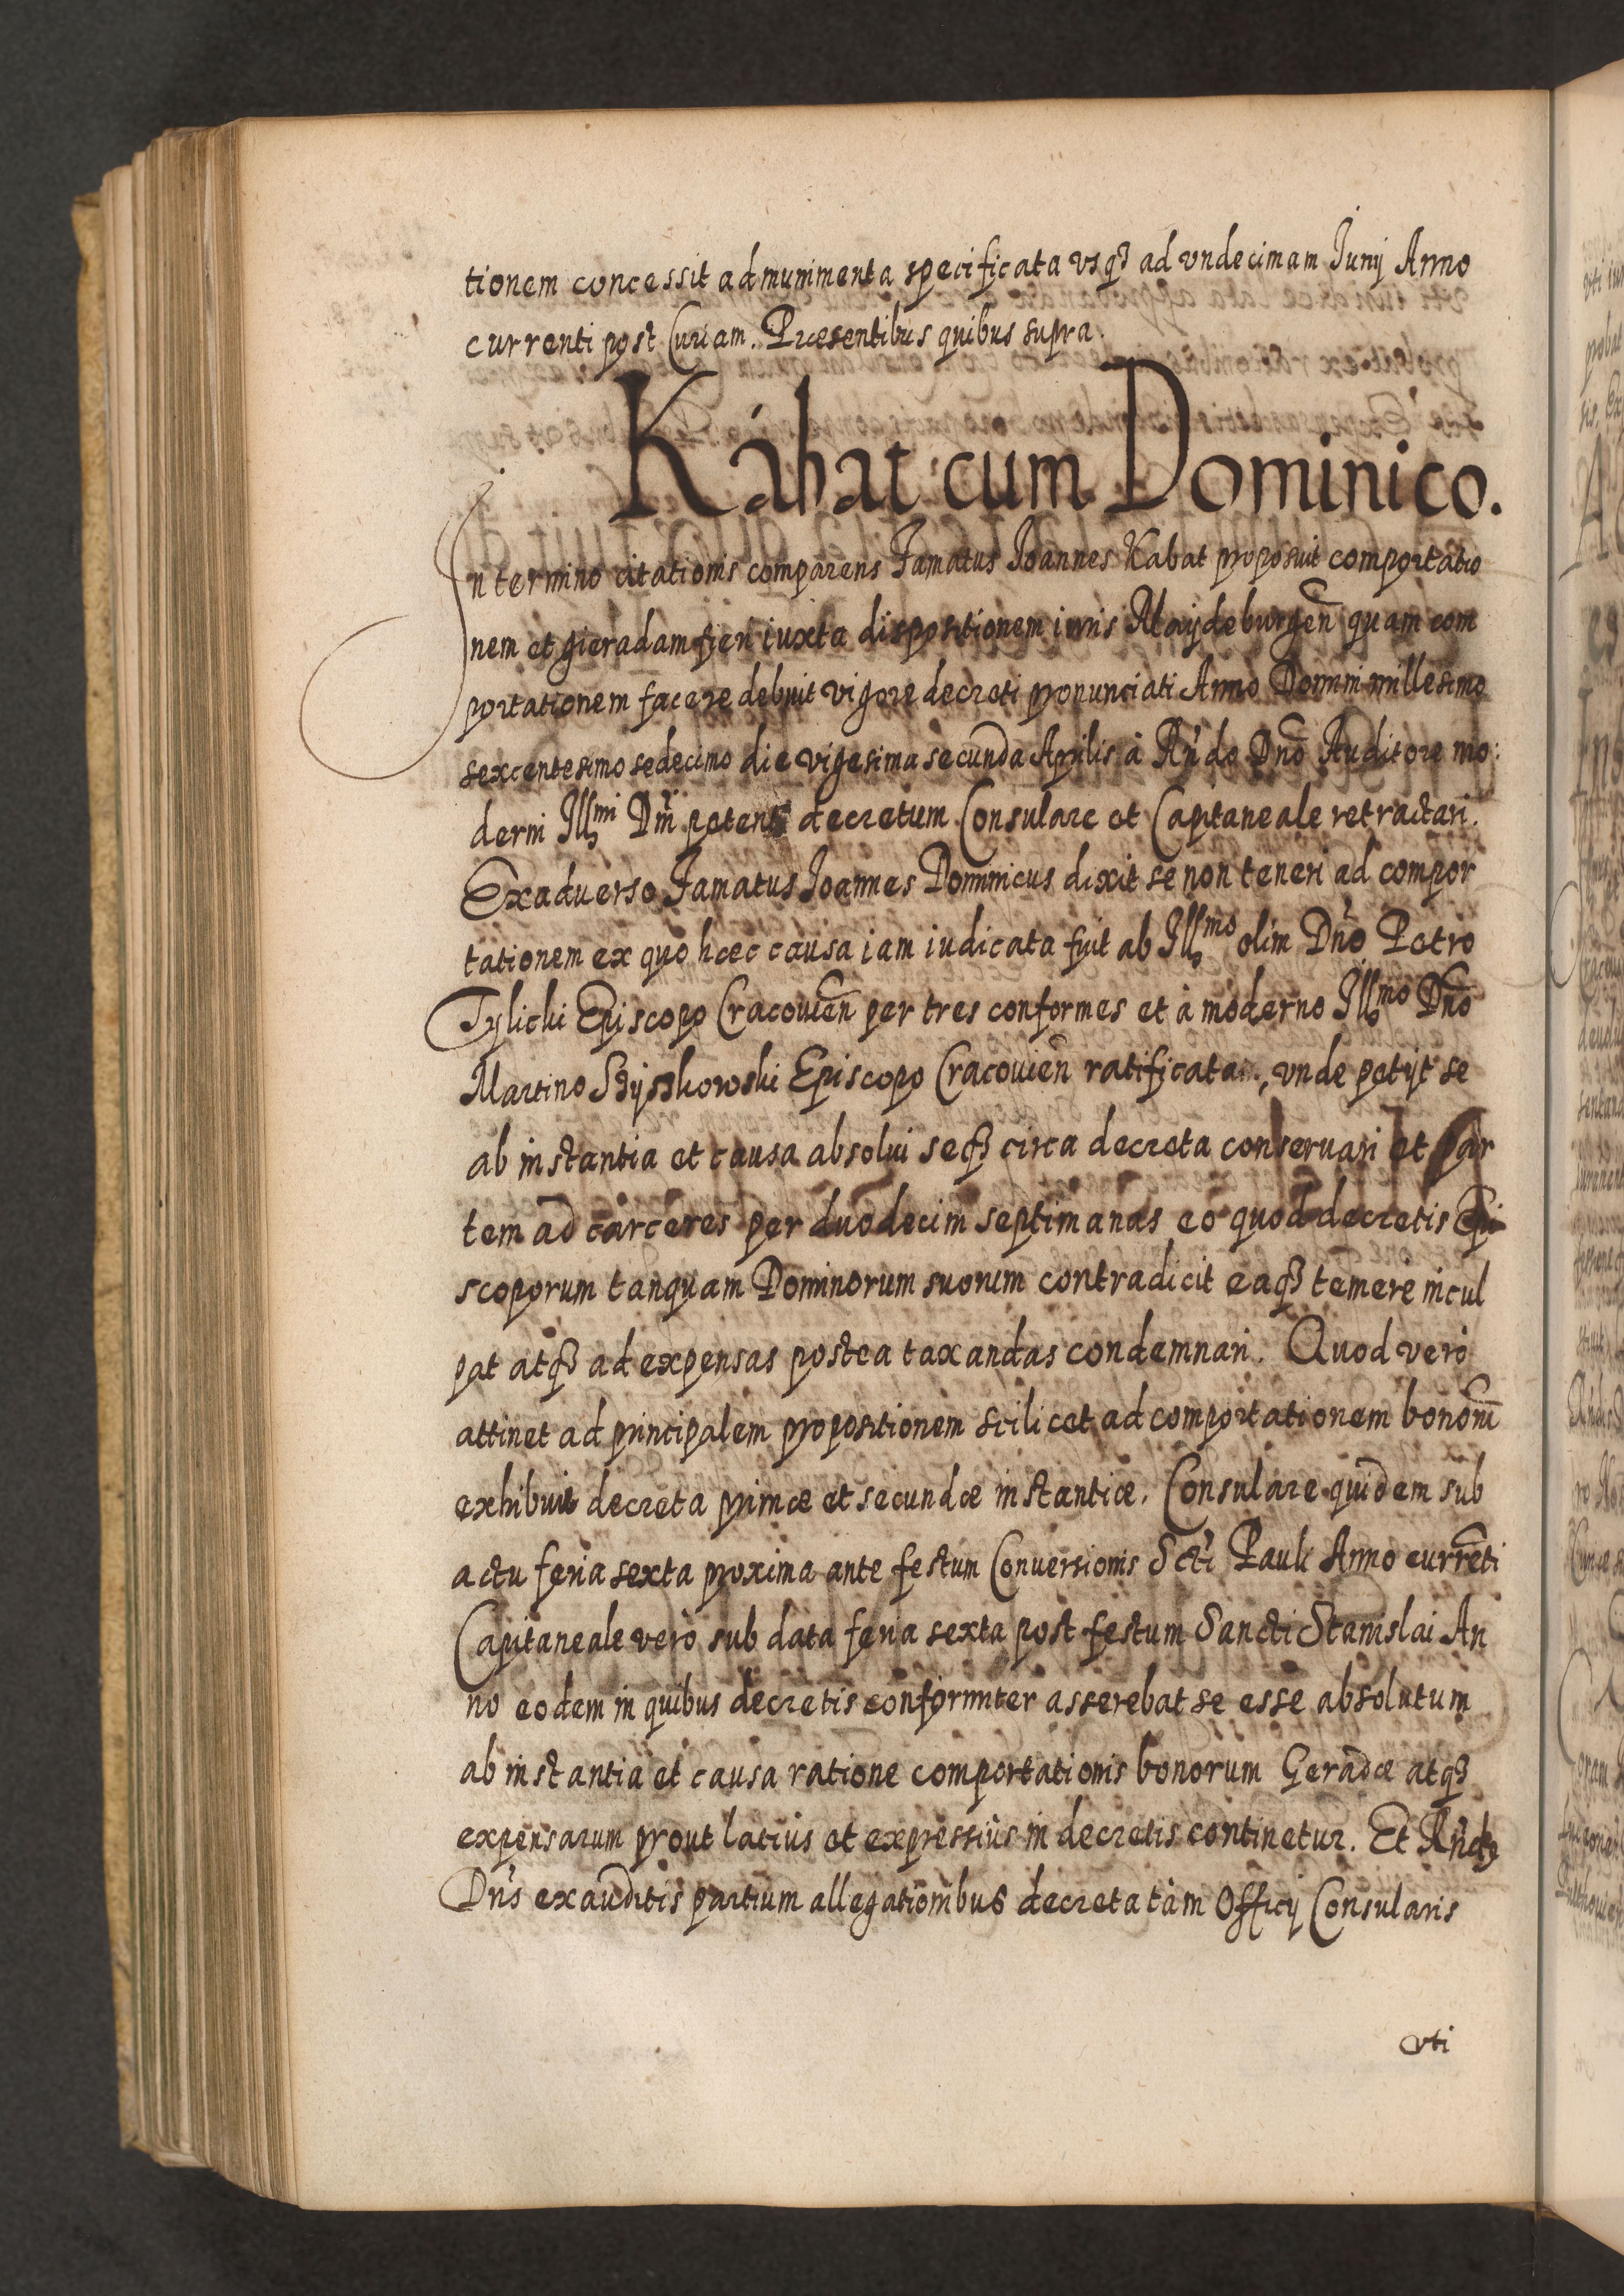 tionem concessit ad munimenta specificata vsqꝫ ad vndecimam Iunij Anno
currenti post Curiam. Præsentibus quibus supra.
Kábat cum Dominico.
In termino citationis comparens Famatus Ioannes Kabat proposuit comportatio
nem et gieradam fieri iuxta dispositionem iuris Maijdeburgen̄ quam com
portationem facere debuit vigore decreti pronunciati Anno Domini millesimo
sexcentesimo sedecimo die vigesima secunda Aprilis à Rn̄do Dnō Auditore mo:
derni Illmi Dn̄i petens decretum Consulare et Capitaneale retractari.
Ex aduerso Famatus Ioannes Dominicus dixit se non teneri ad compor
tationem ex quo hæc causa iam iudicata fuit ab Illmo olim Dnō Petro
Tylicki Episcopo Cracouien̄ per tres conformes et à moderno Illmo Dnō
Martino Szyszkowski Episcopo Cracouien̄ ratificata, vnde petijt se
ab instantia et causa absolui seqꝫ circa decreta conseruari et par
tem ad carceres per duodecim septimanas eo quod decretis Epi
scoporum tanquam Dominorum suorum contradicit eaqꝫ temerè incul
pat atqꝫ ad expensas postea taxandas condemnari. Quod verò
attinet ad principalem propositionem scilicet ad comportationem bonorū
exhibuit decreta primæ et secundæ instantiæ. Consulare quidem sub
actu feria sexta proxima ante festum Conuersionis Scti Pauli Anno currēti
Capitaneale verò sub data feria sexta post festum Sancti Stanislai An
no eodem in quibus decretis conformiter asserebat se esse absolutum
ab instantia et causa ratione comportationis bonorum Geradæ atqꝫ
expensarum prout latius et expressiùs in decretis continetur. Et Rn̄dꝰ
Dn̄s exauditis partium allegationibus decreta tàm Officij Consularis
vti